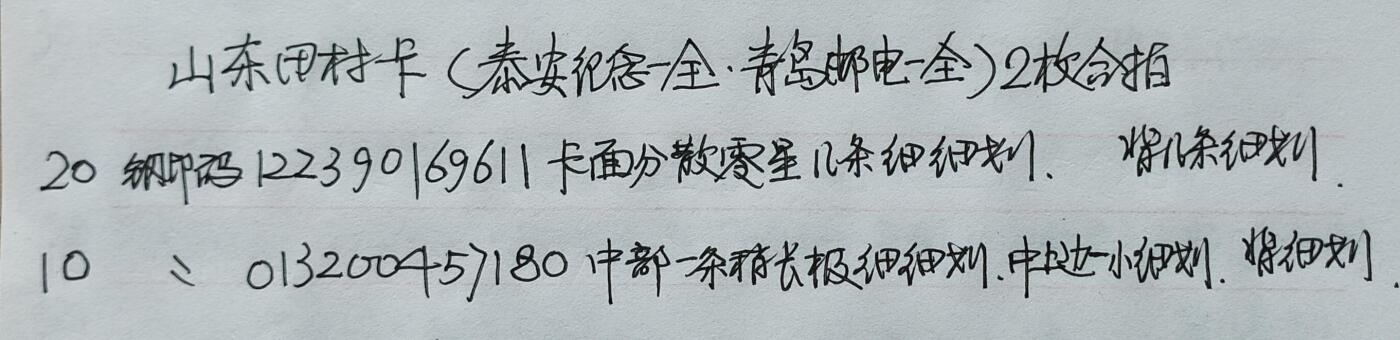 山东田村卡(泰安纪念一全·青岛邮电一全)2枚合拍
20 钢印码122390169611卡面分散零星几条细细划、背几条细划.
10 〃 013200457180中部一条稍长极细细划.中上边一小细划.背细划.